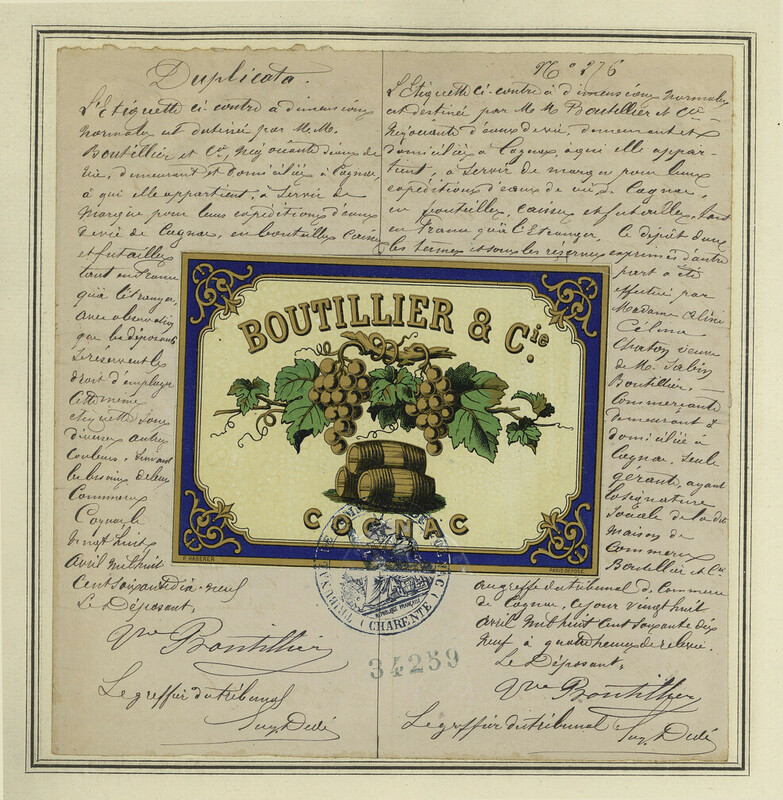 Duplicata.
L'Etiquette ci-contre a dimensions
normales est destinée par M.M.
Boutillier et Cie, Négociants d'eaux de
vie, demeurant et domiciliés à Cognac,
à qui elle appartient, à servir de
marque pour leurs expéditions d'eaux
de vie de Cognac, en bouteilles caisses
et futailles
tant en France
qu'à l'étranger,
avec observation
que les déposants
se réservent le
droit d'employer
cette même
étiquette sous
diverses autres
couleurs, suivant
les besoins de leur
Commerce
Cognac le
vingt huit
Avril mil huit
cent soixante dix-neuf
Le Déposant,
Vve Boutillier
Le greffier du tribunal
No 276
L'Etiquette ci-contre à dimensions normales
est destinée par M M Boutillier et Cie
Négociants d'eaux de vie, demeurant et
domiciliés à Cognac, à qui elle appar-
tient, à servir de marque pour leurs
expéditions d'eaux de vie de Cognac,
en bouteilles, caisses et futailles, tant
en France qu'à l'Etranger, le dépôt dans
les termes et sous les réserves exprimés d'autre
part a été
effectué par
Madame
Célina
Chaton veuve
de M. Sabin
Boutillier,
Commerçante
demeurant &
domiciliée à
Cognac, seule
gérante, ayant
la signature
sociale de la dite
maison de
commerce
Boutillier et Cie
au greffe du tribunal de Commerce
de Cognac, ce jour vingt huit
avril mil huit cent soixante dix
neuf à quatre heures de relevée.
Le Déposant,
Vve Boutillier
Le greffier du tribunal
BOUTILLIER & Cie
COGNAC
P. HABERER
PARIS-DÉPOSÉ
TRIBUNAL DE COMMERCE DE COGNAC
RÉPUBLIQUE FRANÇAISE
(CHARENTE)
34259